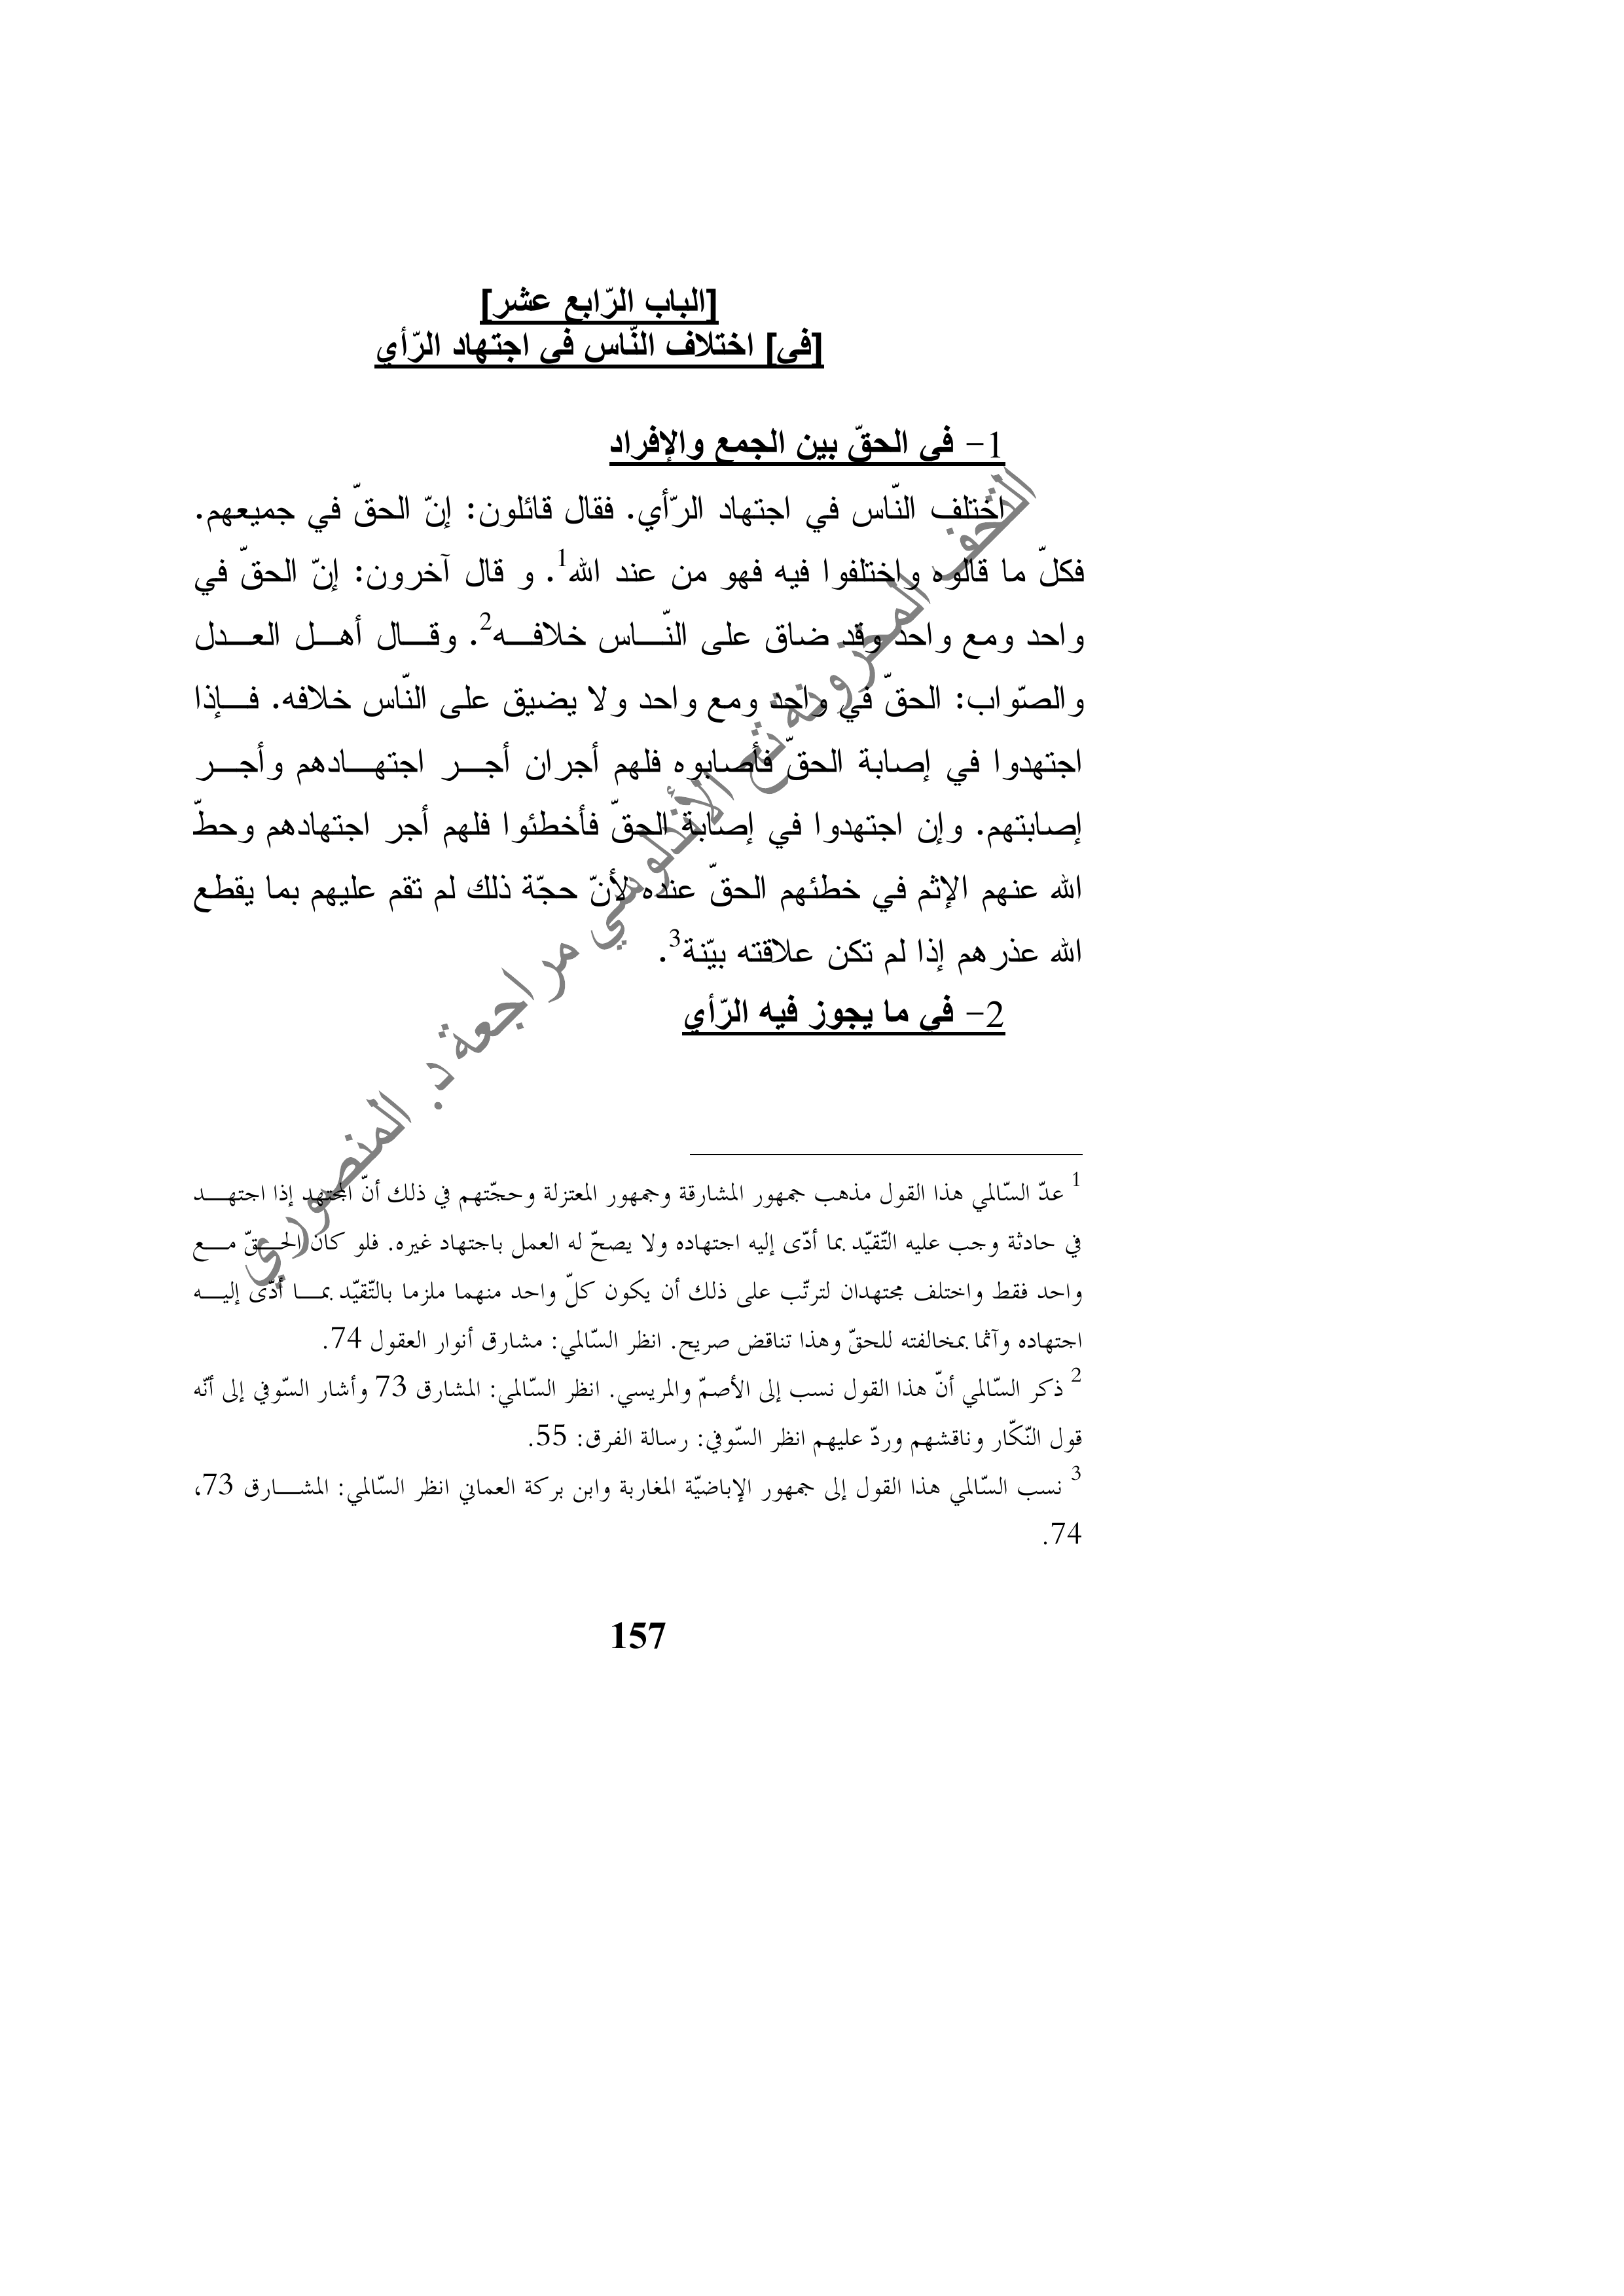 [الباب الرّابع عشر]
[في] اختلاف النّاس في اجتهاد الرّأي
1- في الحقّ بين الجمع والإفراد
اختلف النّاس في اجتهاد الرّأي. فقال قائلون: إنّ الحقّ في جميعهم.
فكلّ ما قالوه واختلفوا فيه فهو من عند الله1. و قال آخرون: إنّ الحقّ في
واحد ومع واحد وقد ضاق على النّاس خلافه2. وقال أهل العدل
والصّواب: الحقّ في واحد ومع واحد ولا يضيق على النّاس خلافه. فإذا
اجتهدوا في إصابة الحقّ فأصابوه فلهم أجران أجر اجتهادهم وأجر
إصابتهم. وإن اجتهدوا في إصابة الحقّ فأخطئوا فلهم أجر اجتهادهم وحطّ
الله عنهم الإثم في خطئهم الحقّ عنده لأنّ حجّة ذلك لم تقم عليهم بما يقطع
الله عذرهم إذا لم تكن علاقته بيّنة3.
2- في ما يجوز فيه الرّأي
1 عدّ السّالمي هذا القول مذهب جمهور المشارقة وجمهور المعتزلة وحجّتهم في ذلك أنّ المجتهد إذا اجتهد
في حادثة وجب عليه التّقيّد بما أدّى إليه اجتهاده ولا يصحّ له العمل باجتهاد غيره. فلو كان الحقّ مع
واحد فقط واختلف مجتهدان لترتّب على ذلك أن يكون كلّ واحد منهما ملزما بالتّقيّد بما أدّى إليه
اجتهاده وآثما بمخالفته للحقّ وهذا تناقض صريح. انظر السّالمي: مشارق أنوار العقول 74.
2 ذكر السّالمي أنّ هذا القول نسب إلى الأصمّ والمريسي. انظر السّالمي: المشارق 73 وأشار السّوفي إلى أنّه
قول النّكّار وناقشهم وردّ عليهم انظر السّوفي: رسالة الفرق: 55.
3 نسب السّالمي هذا القول إلى جمهور الإباضيّة المغاربة وابن بركة العماني انظر السّالمي: المشارق 73،
74.
157
التحف المخزونة تح الأندلوسي مراجعة د. المنصوري